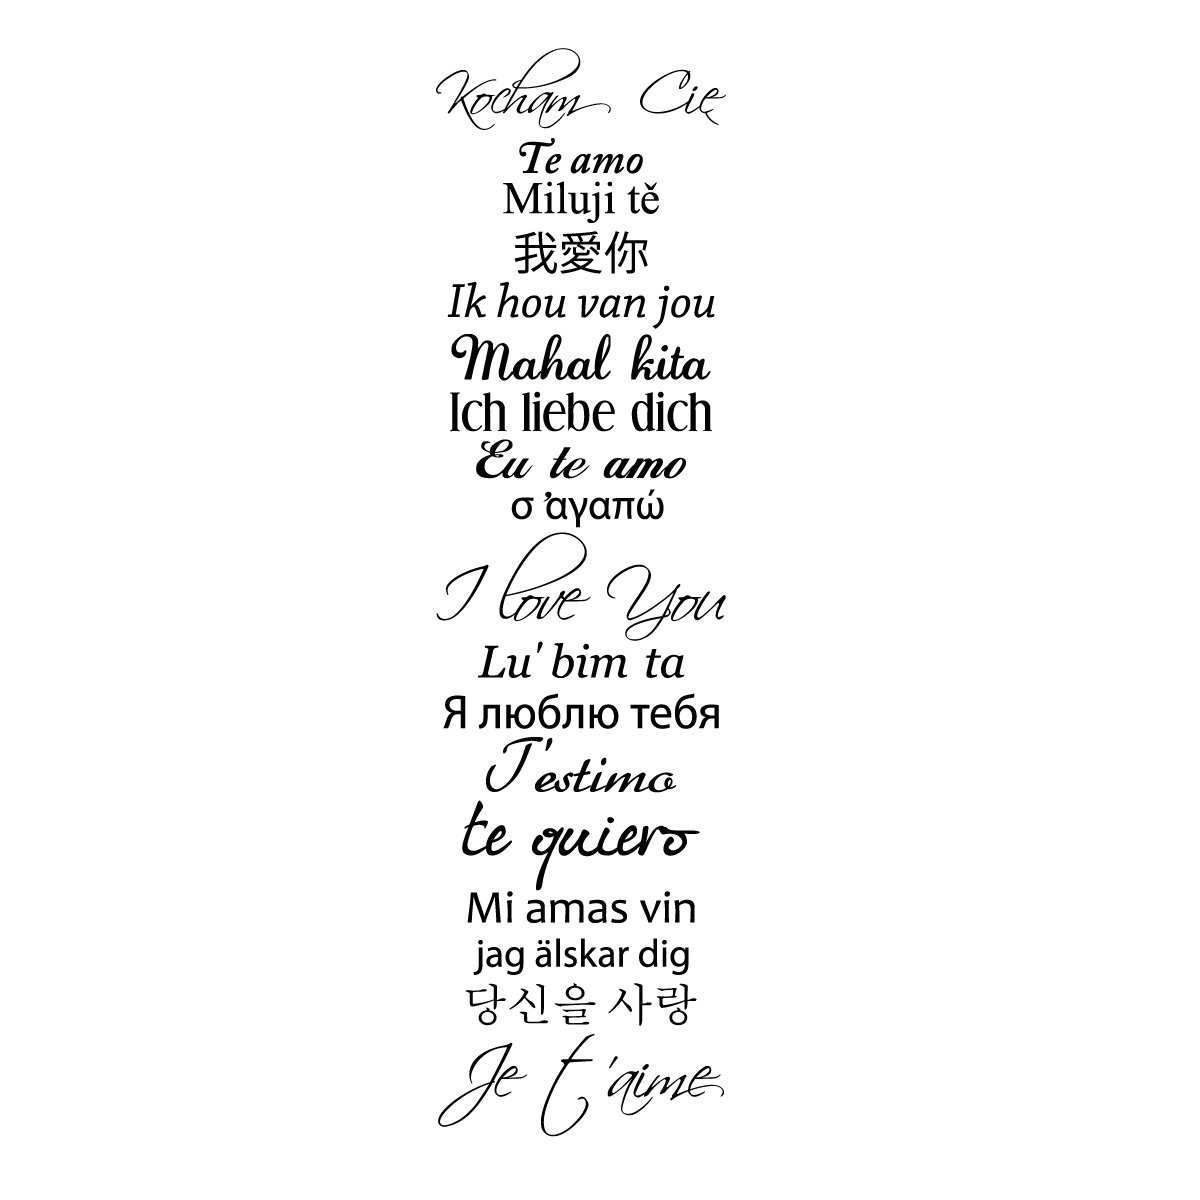 Kocham Cię
Te amo
Miluji tě
我愛你
Ik hou van jou
Mahal kita
Ich liebe dich
Eu te amo
σ ἀγαπώ
I love You
Lu' bim ta
Я люблю тебя
T'estimo
te quiero
Mi amas vin
jag älskar dig
당신을 사랑
Je t'aime